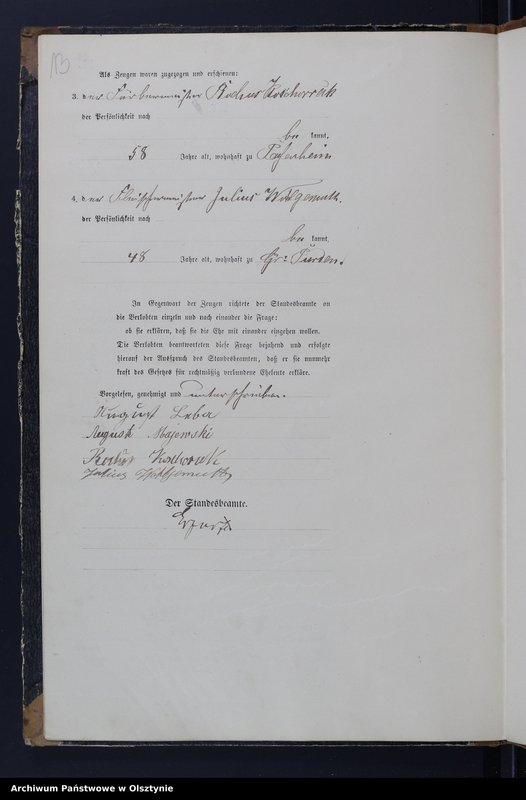 Als Zeugen waren zugezogen und erschienen:
3. der Färbermeister Rochus Kochorrek
der Persönlichkeit nach
be kannt,
58 Jahre alt, wohnhaft zu
4. der Fleischermeister Julius Wohlgemuth.
der Persönlichkeit nach
be kannt,
48 Jahre alt, wohnhaft zu Gr: Purden.
In Gegenwart der Zeugen richtete der Standesbeamte an
die Verlobten einzeln und nach einander die Frage:
ob sie erklären, daß sie die Ehe mit einander eingehen wollen.
Die Verlobten beantworteten diese Frage bejahend und erfolgte
hierauf der Ausspruch des Standesbeamten, daß er sie nunmehr
kraft des Gesetzes für rechtmäßig verbundene Eheleute erkläre.
Vorgelesen, genehmigt und unterschrieben.
August
August Majewski
Julius
Der Standesbeamte.
Archiwum Państwowe w Olsztynie